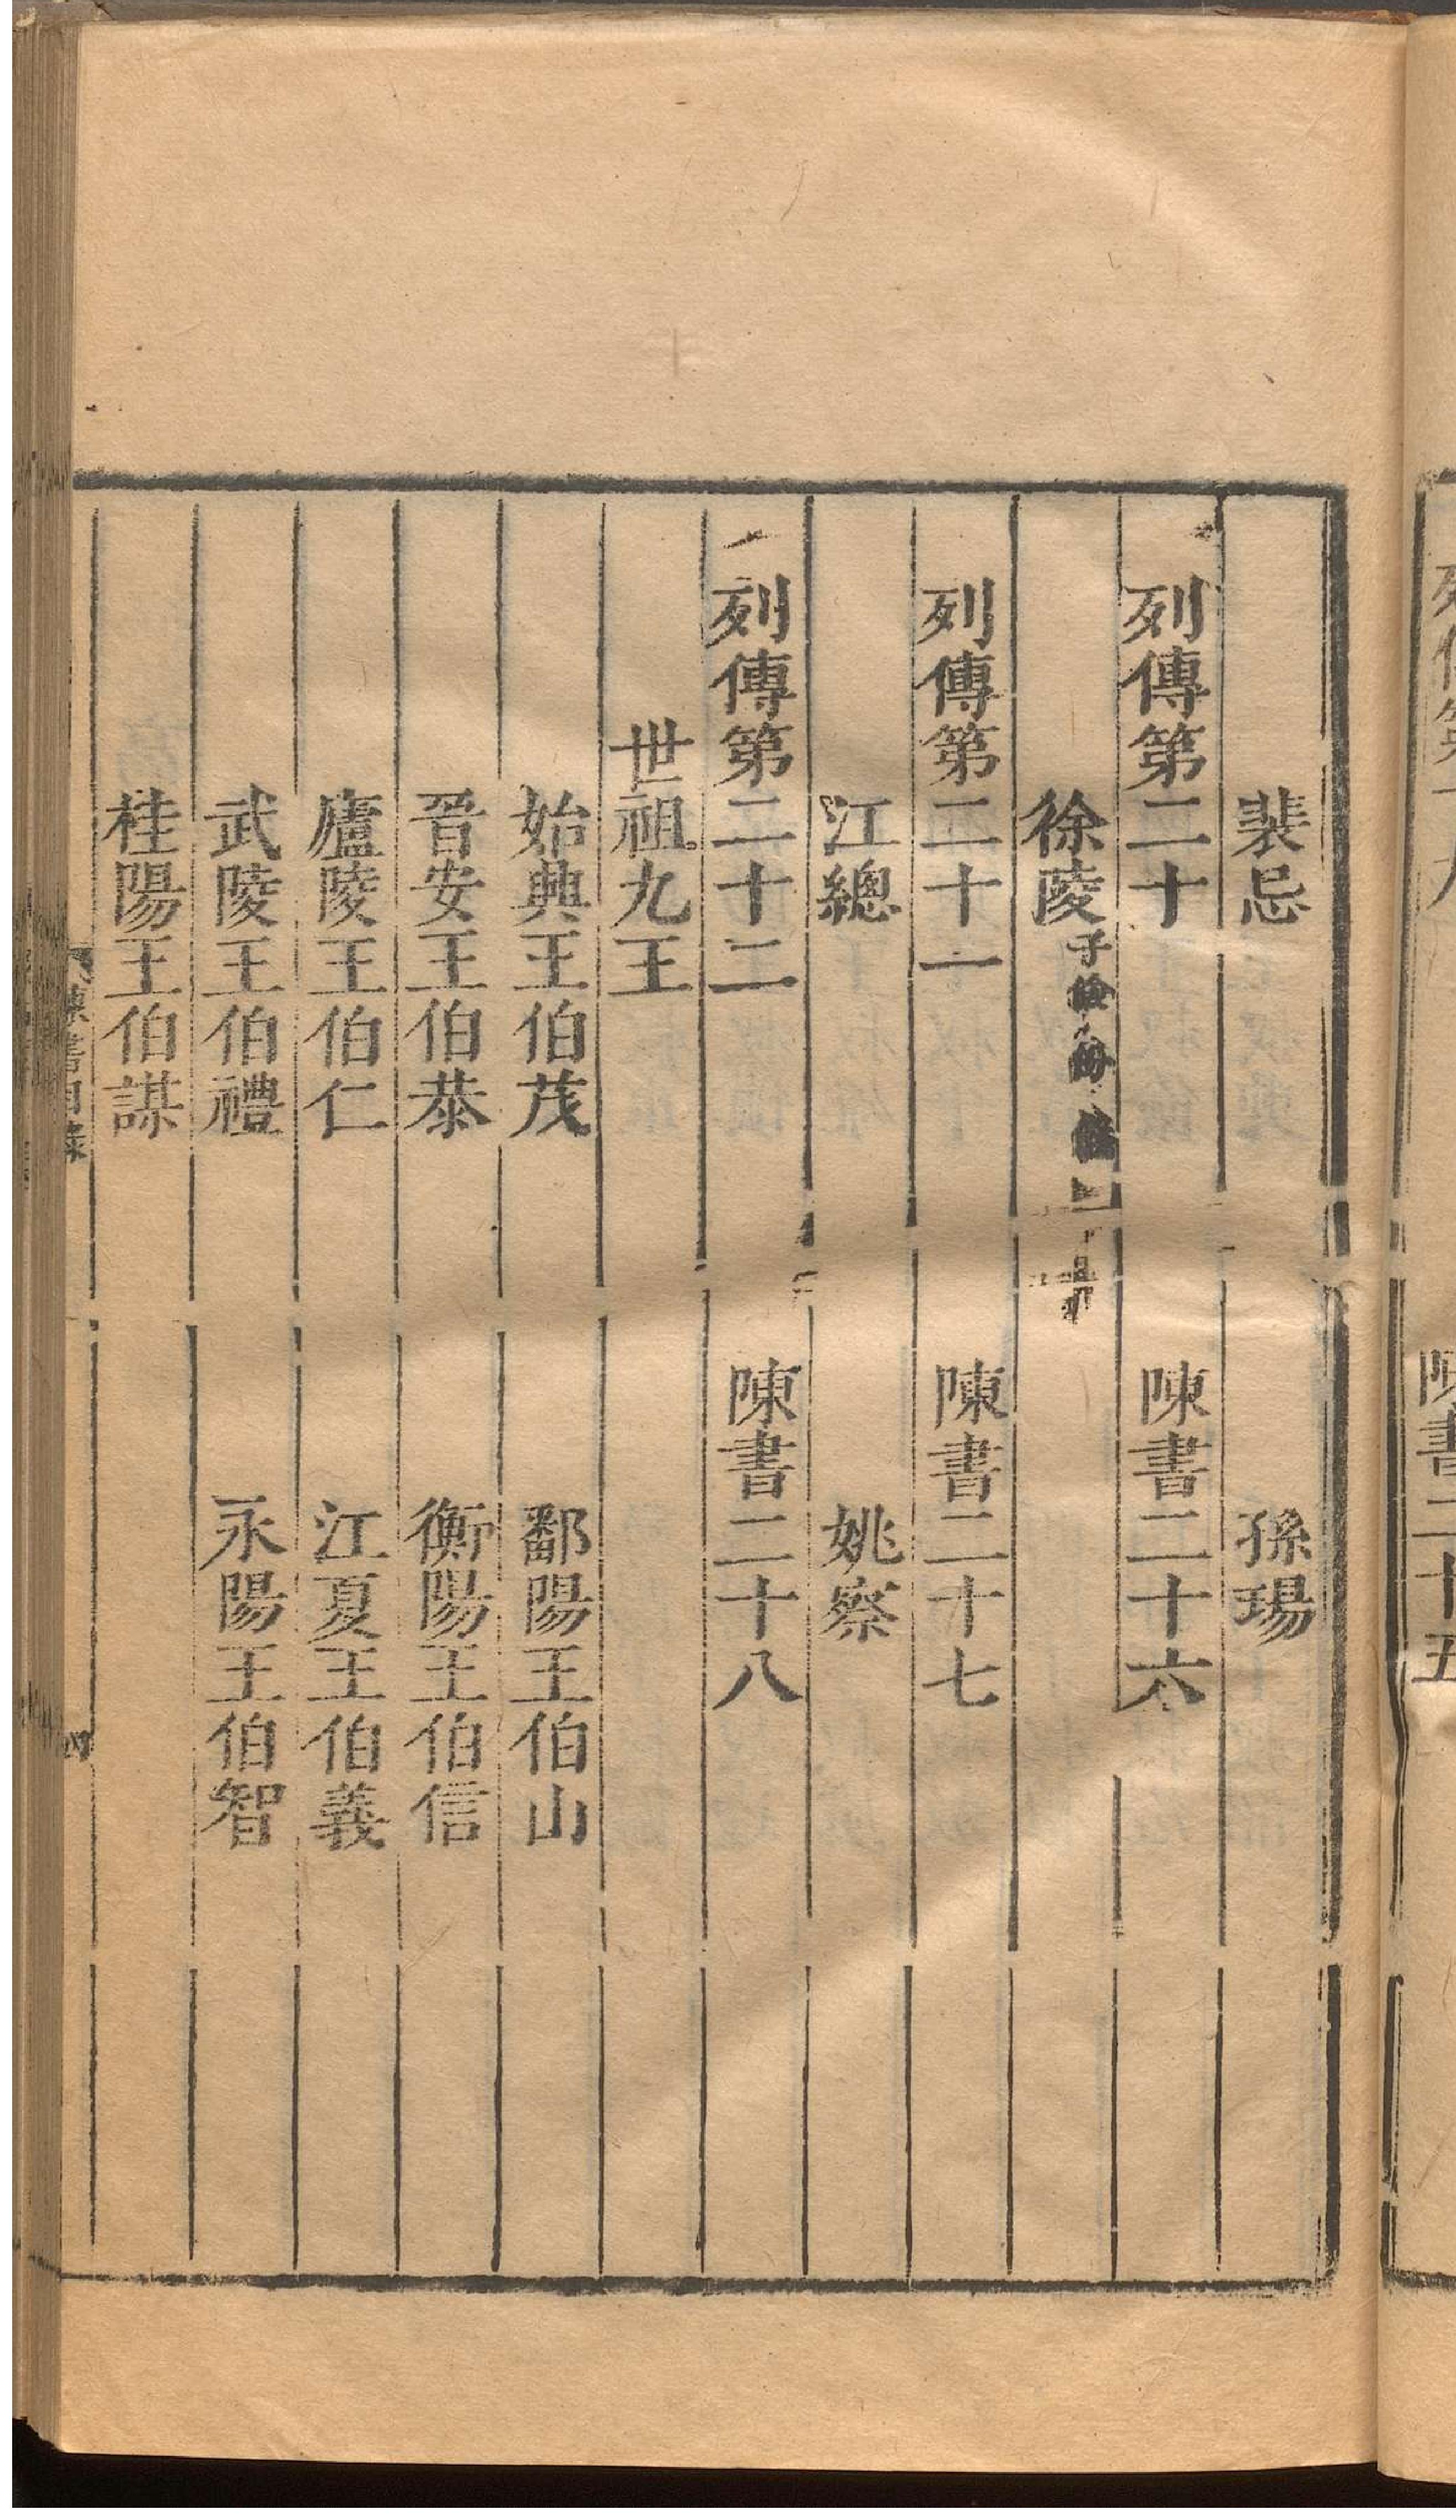 裴忌　孫瑒
列傳第二十　陳書二十六
徐陵子儉份儀
列傳第二十一　陳書二十七
江總　姚察
列傳第二十二　陳書二十八
世祖九王
始興王伯茂　鄱陽王伯山
晉安王伯恭　衡陽王伯信
廬陵王伯仁　江夏王伯義
武陵王伯禮　永陽王伯智
桂陽王伯謀
陳書目錄　四